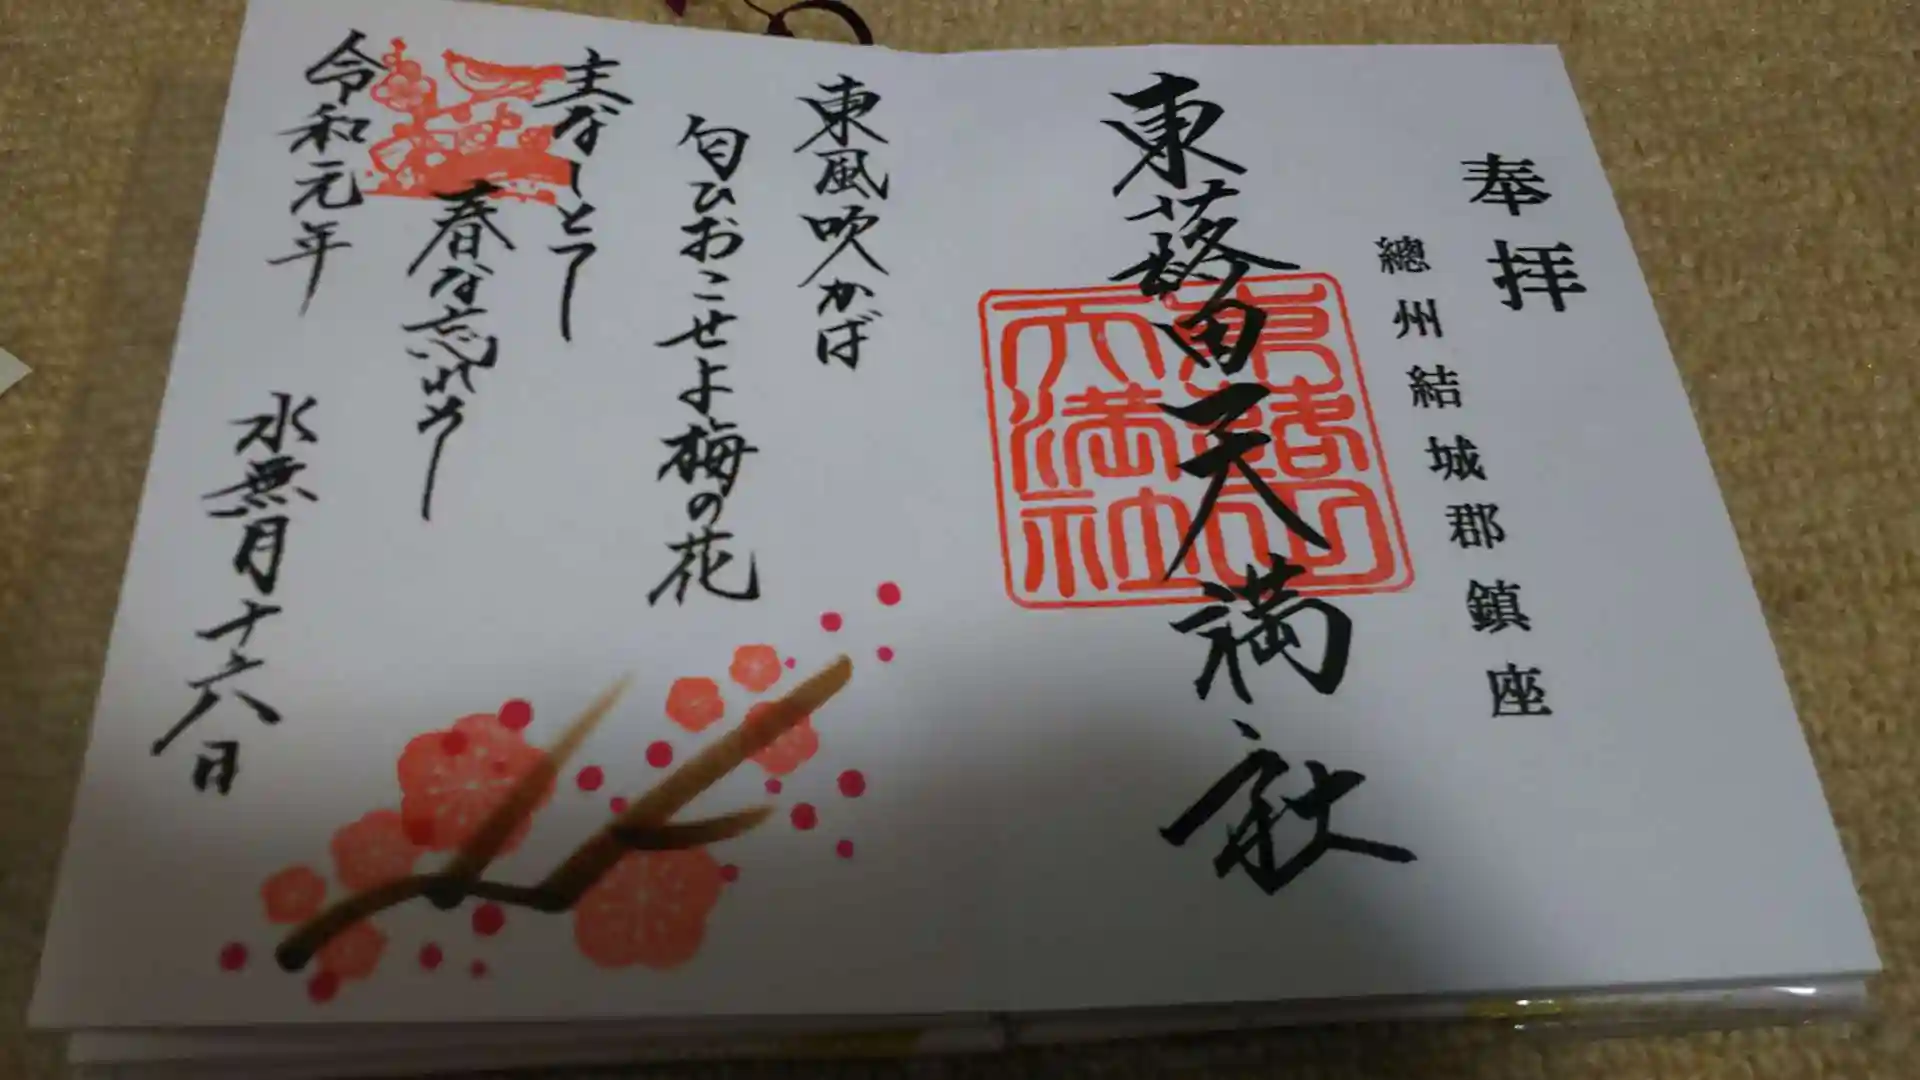 奉拝
總州結城郡鎮座
東蕗田天満社
東蕗田天満社
東風吹かば
匂ひおこせよ梅の花
主なしとて
春な忘れそ
令和元年
水無月十六日